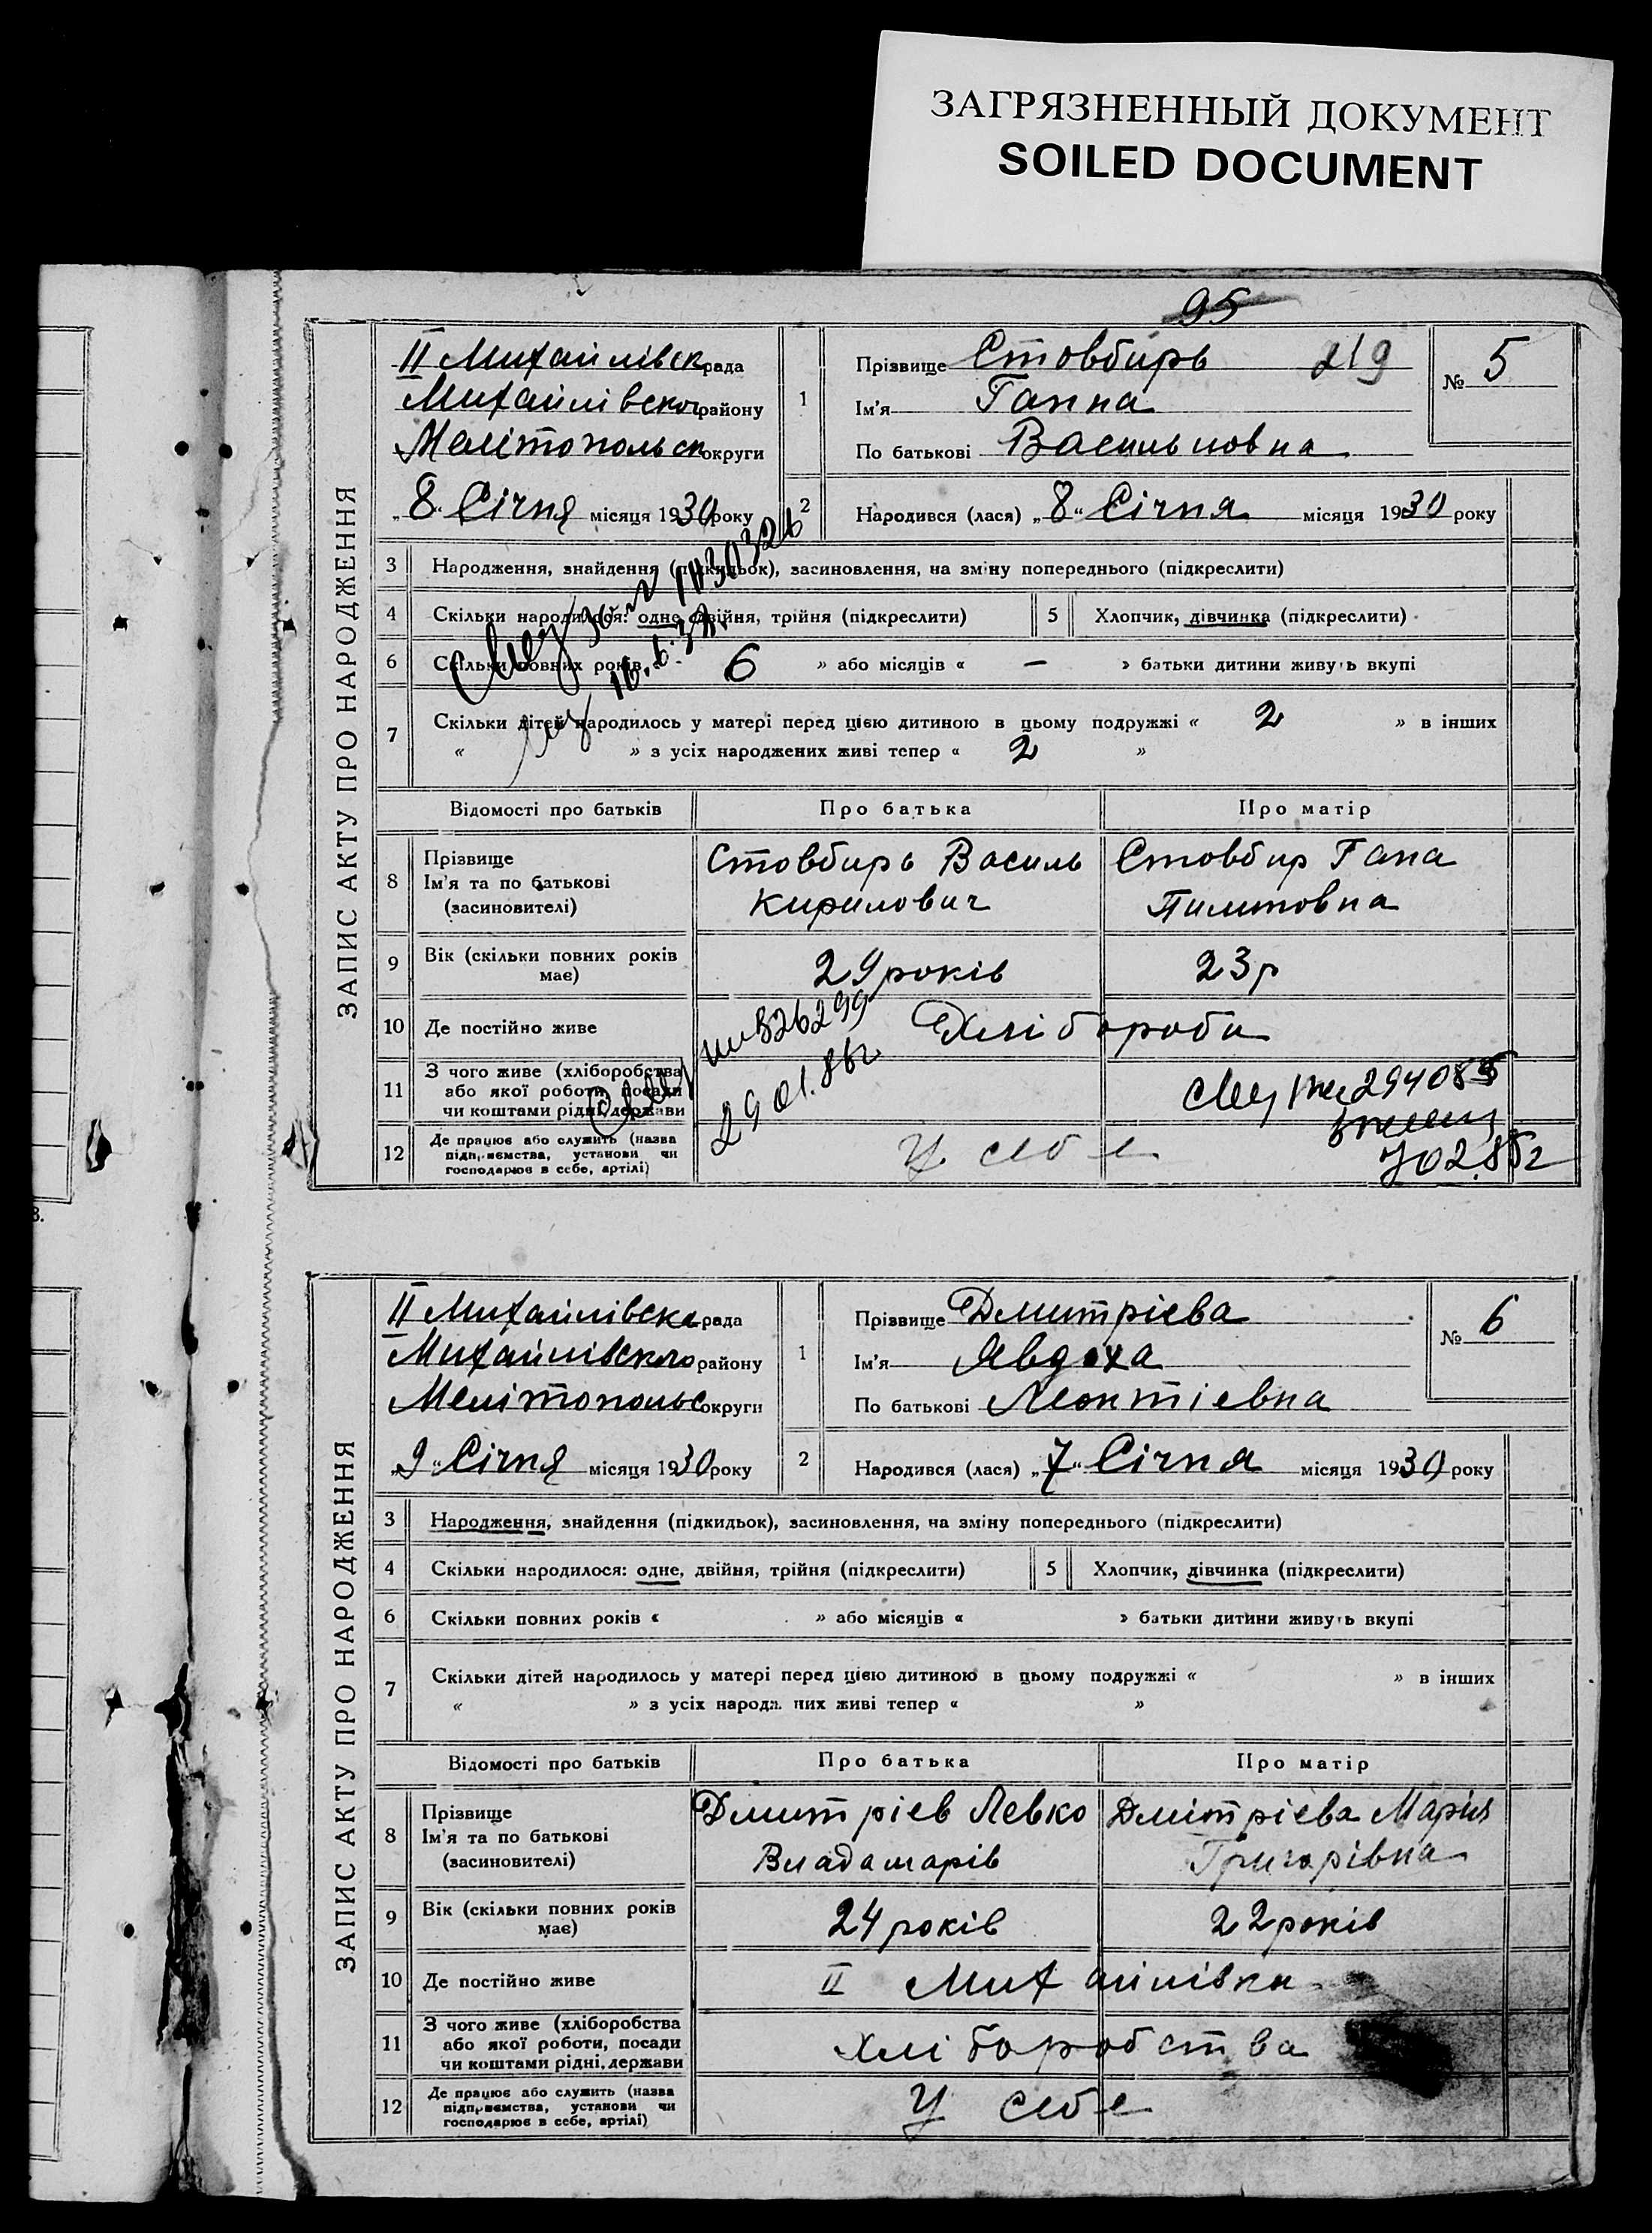 ЗАГРЯЗНЕННЫЙ ДОКУМЕНТ
SOILED DOCUMENT
95
ЗАПИС АКТУ ПРО НАРОДЖЕННЯ
II Михайлівск рада
Михайлівского району
Мелітопольск округи
„8“ Січня місяця 1930 року
1
Прізвище Стовбирь 219
Ім'я Ганна
По батькові Васильовна
№ 5
2 Народився (лася) „8“ Січня місяця 1930 року
3 Народження, знайдення (підкидьок), засиновлення, на зміну попереднього (підкреслити)
4 Скільки народилося: одне, двійня, трійня (підкреслити) 5 Хлопчик, дівчинка (підкреслити)
6 Скільки повних років « 6 » або місяців « — » батьки дитини живуть вкупі
7 Скільки дітей народилось у матері перед цією дитиною в цьому подружжі « 2 » в інших
« » з усіх народжених живі тепер « 2 »
Відомості про батьків Про батька Про матір
8 Прізвище
Ім'я та по батькові
(засиновителі)
Стовбирь Василь
Кирилович
Стовбир Гана
Пилиповна
9 Вік (скільки повних років
має)
29 років 23 р
10 Де постійно живе
Хлібороби
826299
29 01. 86 г.
11 З чого живе (хліборобства
або якої роботи, посади
чи коштами рідні, держави
294085
702.85 г
12 Де працює або служить (назва
підприємства, установи чи
господарює в себе, артілі)
У себе
ЗАПИС АКТУ ПРО НАРОДЖЕННЯ
II Михайлівска рада
Михайлівского району
Мелітопольс округи
„9“ Січня місяця 1930 року
1
Прізвище Дмитрієва
Ім'я Явдоха
По батькові Леонтієвна
№ 6
2 Народився (лася) „7“ Січня місяця 1930 року
3 Народження, знайдення (підкидьок), засиновлення, на зміну попереднього (підкреслити)
4 Скільки народилося: одне, двійня, трійня (підкреслити) 5 Хлопчик, дівчинка (підкреслити)
6 Скільки повних років « » або місяців « » батьки дитини живуть вкупі
7 Скільки дітей народилось у матері перед цією дитиною в цьому подружжі « » в інших
« » з усіх народж. них живі тепер « »
Відомості про батьків Про батька Про матір
8 Прізвище
Ім'я та по батькові
(засиновителі)
Дмитрієв Левко
Дмітрієва Марія
Григорівна
9 Вік (скільки повних років
має)
24 років 22 років
10 Де постійно живе
II Михайлівка
11 З чого живе (хліборобства
або якої роботи, посади
чи коштами рідні, держави
Хліборобства
12 Де працює або служить (назва
підприємства, установи чи
господарює в себе, артілі)
У себе